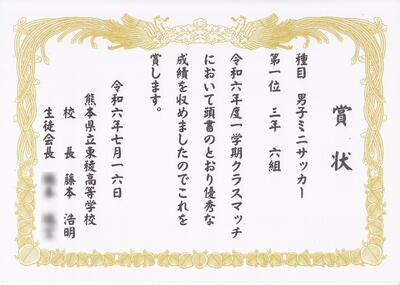 賞状
種目 男子ミニサッカー
第一位 三年 六組
令和六年度一学期クラスマッチ
において頭書のとおり優秀な
成績を収めましたのでこれを
賞します。
令和六年七月一六日
熊本県立東稜高等学校
校長 藤本 浩明
生徒会長